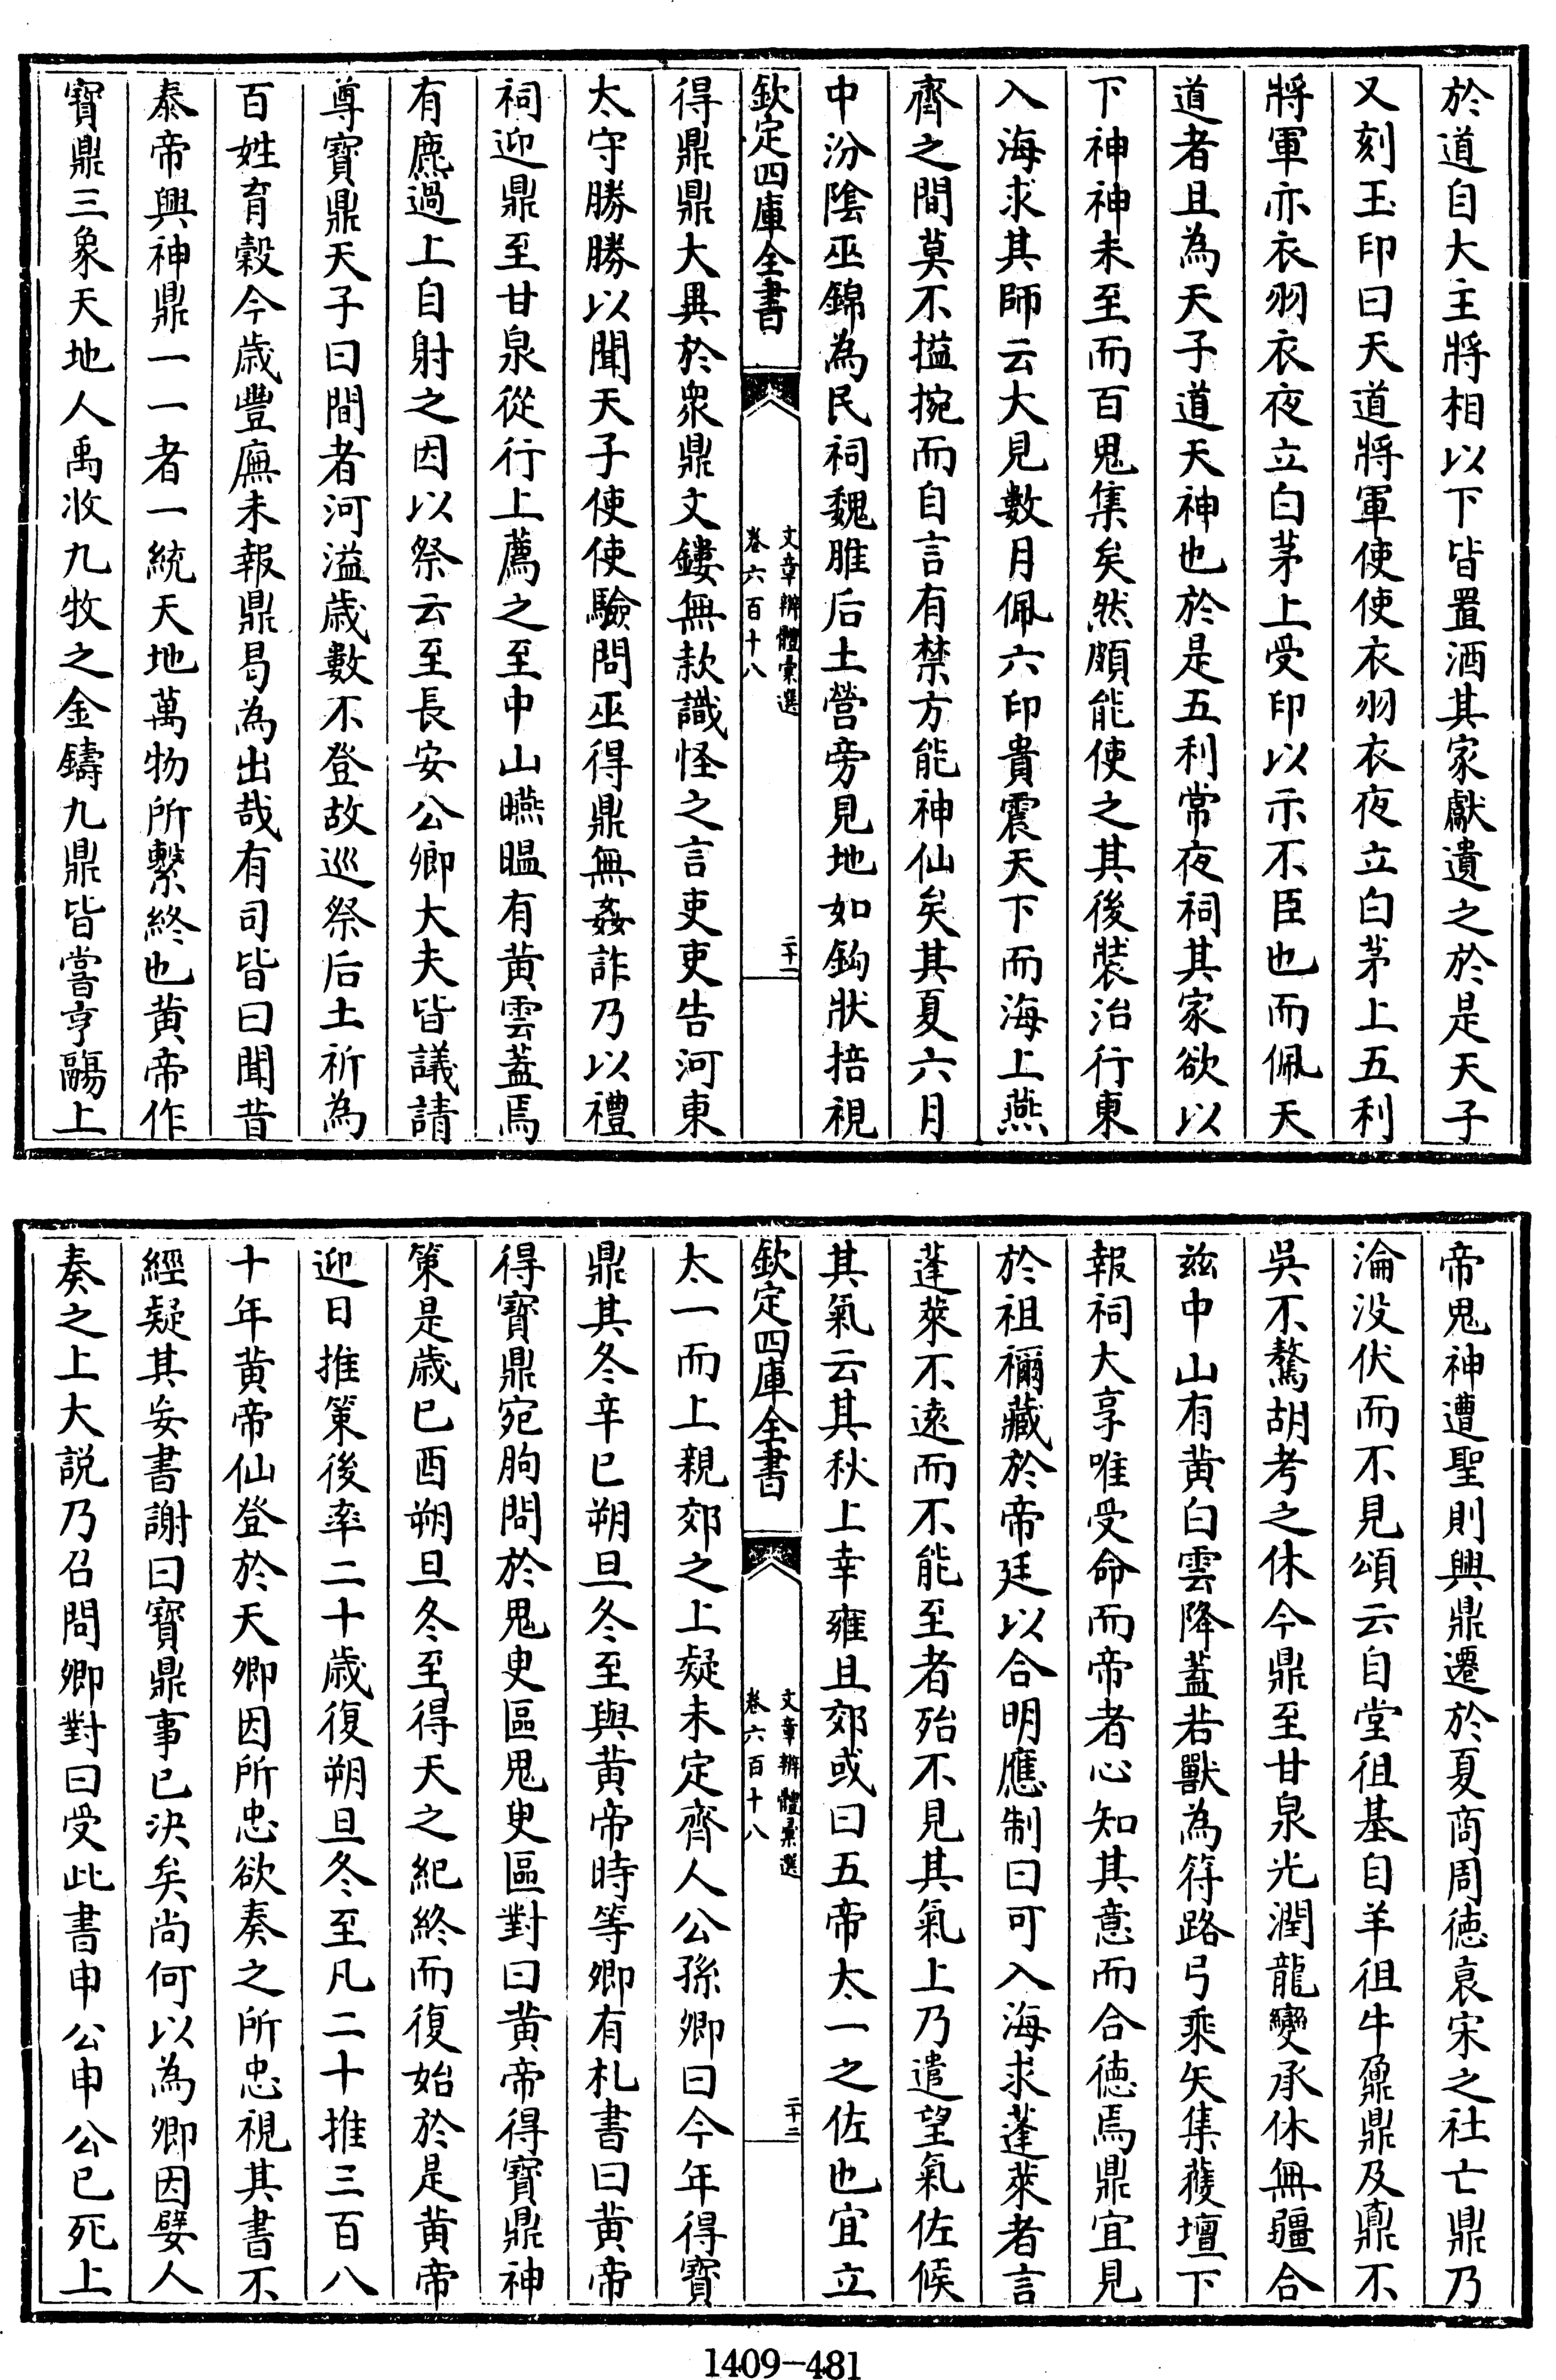 於道自大主將相以下皆置酒其家獻遺之於是天子
又刻玉印曰天道將軍使使衣羽衣夜立白茅上五利
將軍亦衣羽衣夜立白茅上受印以示不臣也而佩天
道者且為天子道天神也於是五利常夜祠其家欲以
下神神未至而百鬼集矣然頗能使之其後裝治行東
入海求其師云大見數月佩六印貴震天下而海上燕
齊之間莫不搤捥而自言有禁方能神仙矣其夏六月
中汾陰巫錦為民祠魏脽后土營旁見地如鈎狀掊視
欽定四庫全書
文章辨體彙選
卷六百十八
二十一
得鼎鼎大異於衆鼎文鏤無款識怪之言吏吏告河東
太守勝勝以聞天子使使驗問巫得鼎無姦詐乃以禮
祠迎鼎至甘泉從行上薦之至中山曣㬈有黄雲蓋焉
有麃過上自射之因以祭云至長安公卿大夫皆議請
尊寶鼎天子曰間者河溢歳數不登故巡祭后土祈為
百姓育穀今歳豐廡未報鼎曷為出哉有司皆曰聞昔
泰帝興神鼎一一者一統天地萬物所繫終也黄帝作
寶鼎三象天地人禹收九牧之金鑄九鼎皆嘗亨鬺上
帝鬼神遭聖則興鼎遷於夏商周徳衰宋之社亡鼎乃
淪没伏而不見頌云自堂徂基自羊徂牛鼐鼎及鼒不
吳不驁胡考之休今鼎至甘泉光潤龍變承休無疆合
兹中山有黄白雲降蓋若獸為符路弓乘矢集獲壇下
報祠大享唯受命而帝者心知其意而合徳焉鼎宜見
於祖禰藏於帝廷以合明應制曰可入海求蓬萊者言
蓬萊不遠而不能至者殆不見其氣上乃遣望氣佐候
其氣云其秋上幸雍且郊或曰五帝太一之佐也宜立
欽定四庫全書
文章辨體彙選
卷六百十八
二十二
太一而上親郊之上疑未定齊人公孫卿曰今年得寶
鼎其冬辛巳朔旦冬至與黄帝時等卿有札書曰黄帝
得寶鼎宛朐問於鬼臾區鬼臾區對曰黄帝得寶鼎神
策是歳己酉朔旦冬至得天之紀終而復始於是黄帝
迎日推策後率二十歳復朔旦冬至凡二十推三百八
十年黄帝仙登於天卿因所忠欲奏之所忠視其書不
經疑其妄書謝曰寶鼎事已決矣尚何以為卿因嬖人
奏之上大説乃召問卿對曰受此書申公申公已死上
1409-481